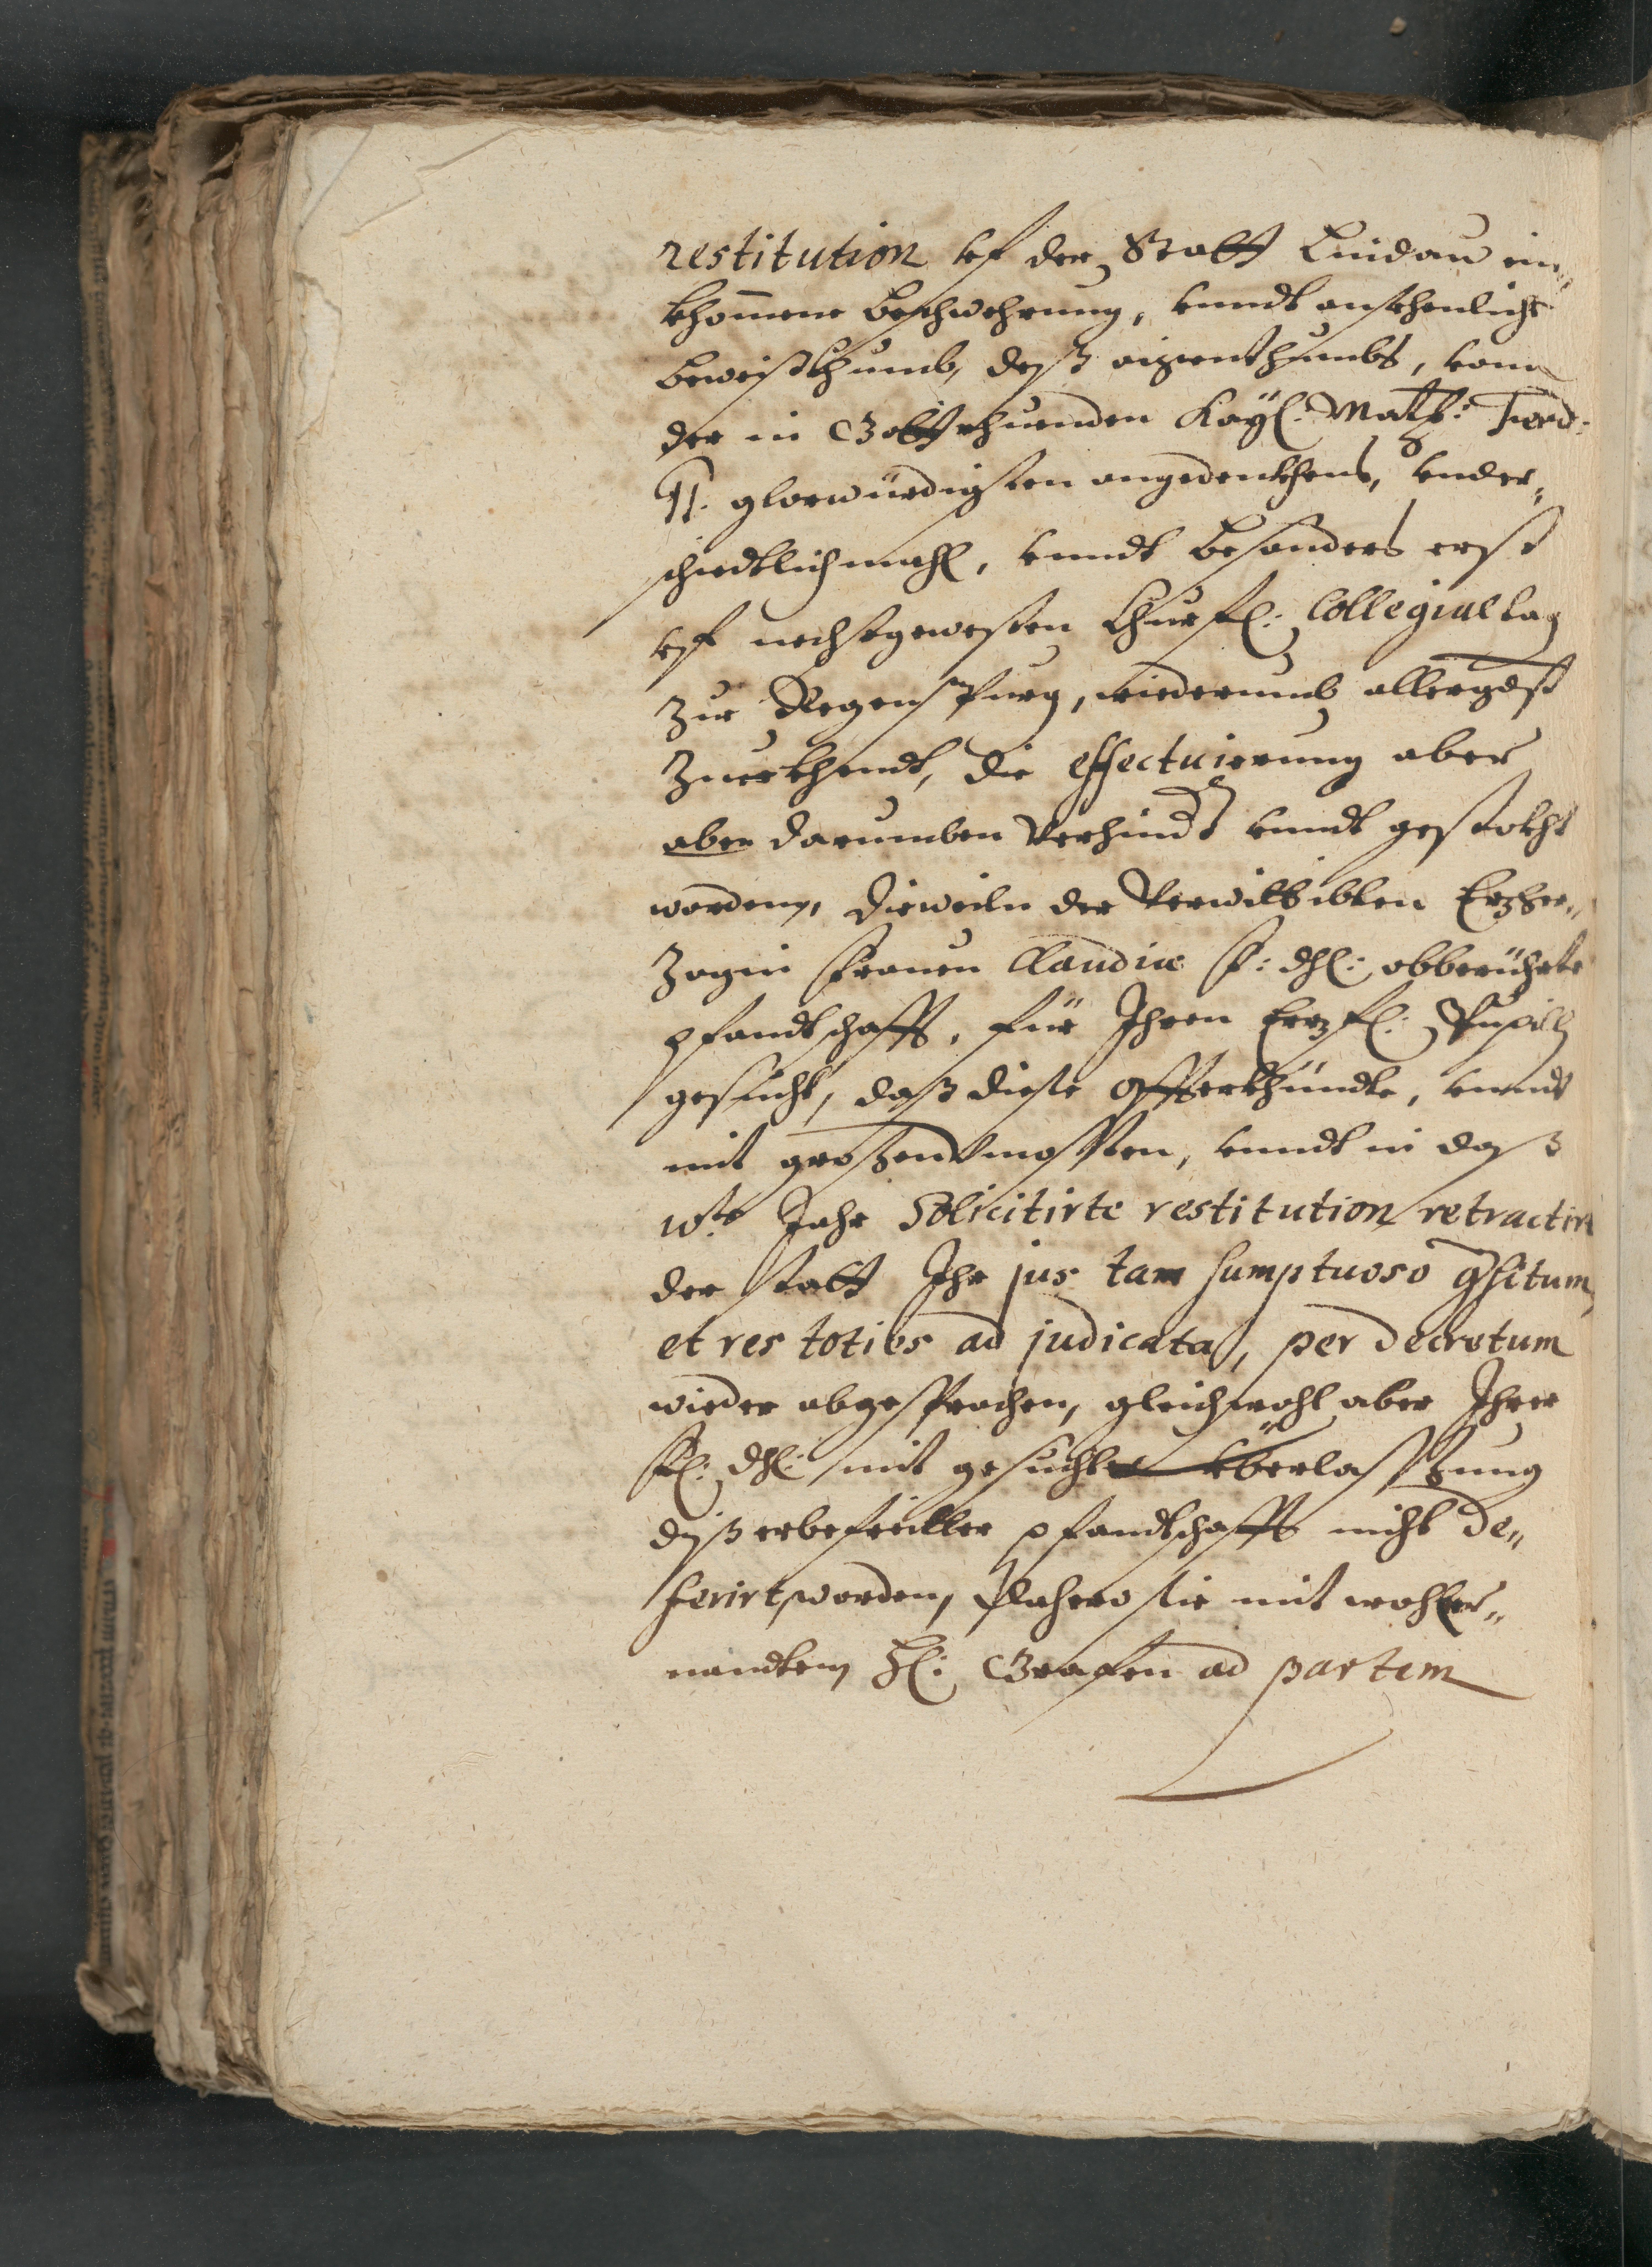 restitution vf der Statt Lindau ein„
khommene beschwehrung, vnndt ansehenliche
beweißthumb, deß aigenthumbs, vonn
der in Gott rhuenden Kayl: Maytt: Ferd:
II. glorwürdigsten angedenkhens, vnder„
schiedtlichmahl, vnndt besonders erst
vff nechstgewesten Churfl: Collegialtag
zur Regenspurg, wiederumb allergdst
zuerkhendt, die effectuierung aber
aber darumben verhindt vnndt gestekht
worden, dieweiln der Verwittibten Erzher„
zogin Frauen Claudiæ F: dhl: obberührte
pfandtschafft, für Ihren Erzfl: Pupill
gesucht, daß diese offterkhündte, vnndt
mit großen vncosten, vnndt in daß
10te Jahr Solicitirte restitution retractirt
der statt Ihr jus tam sumptuoso qsitum
et res toties ad judicata, per decretum
wieder abgesprochen, gleichwohl aber Ihrer
Fl: dhl: mit gesuchter vberlaßung
diß erbefreiter pfandtschafft nicht de„
ferirt worden, Dahero sie mit wohler„
nandtem H: Grafen ad partem